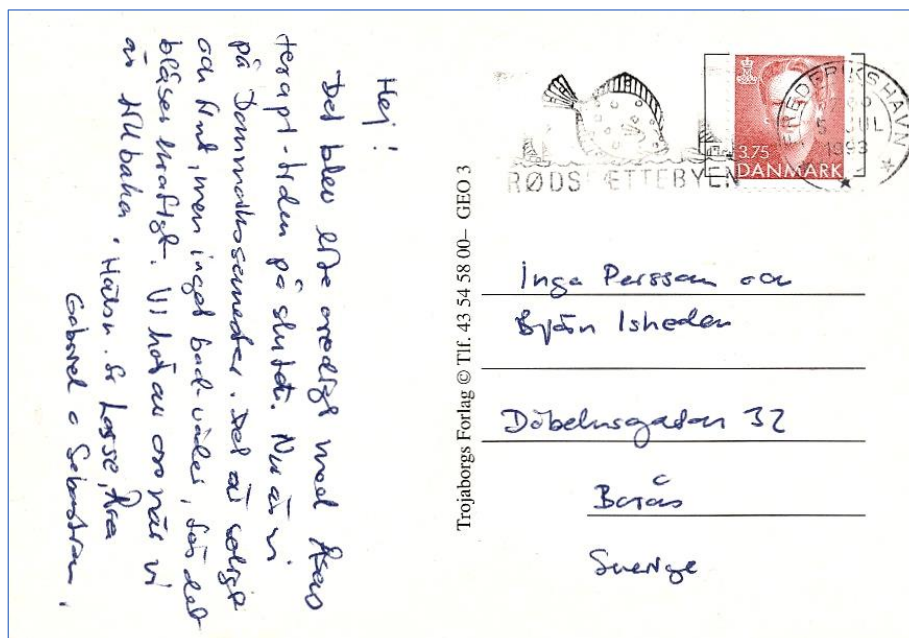 Hej!
Det blev lite oredigt med Åsas
terapi-tider på slutet. Nu är vi
på Danmarkssemester. Det är soligt
och fint, men inget bad-väder, för det
blåser kraftigt. Vi hör av oss när vi
är tillbaka. Hälsn. fr Lasse, Åsa
Gabriel o Sebastian.
Trojaborgs Forlag © Tlf. 43 54 58 00– GEO 3
RØDSPÆTTEBYEN
FREDERIKSHAVN
5 JUL
1993
3.75
DANMARK
Inga Persson och
Björn Isheden
Döbelnsgatan 32
Borås
Sverige